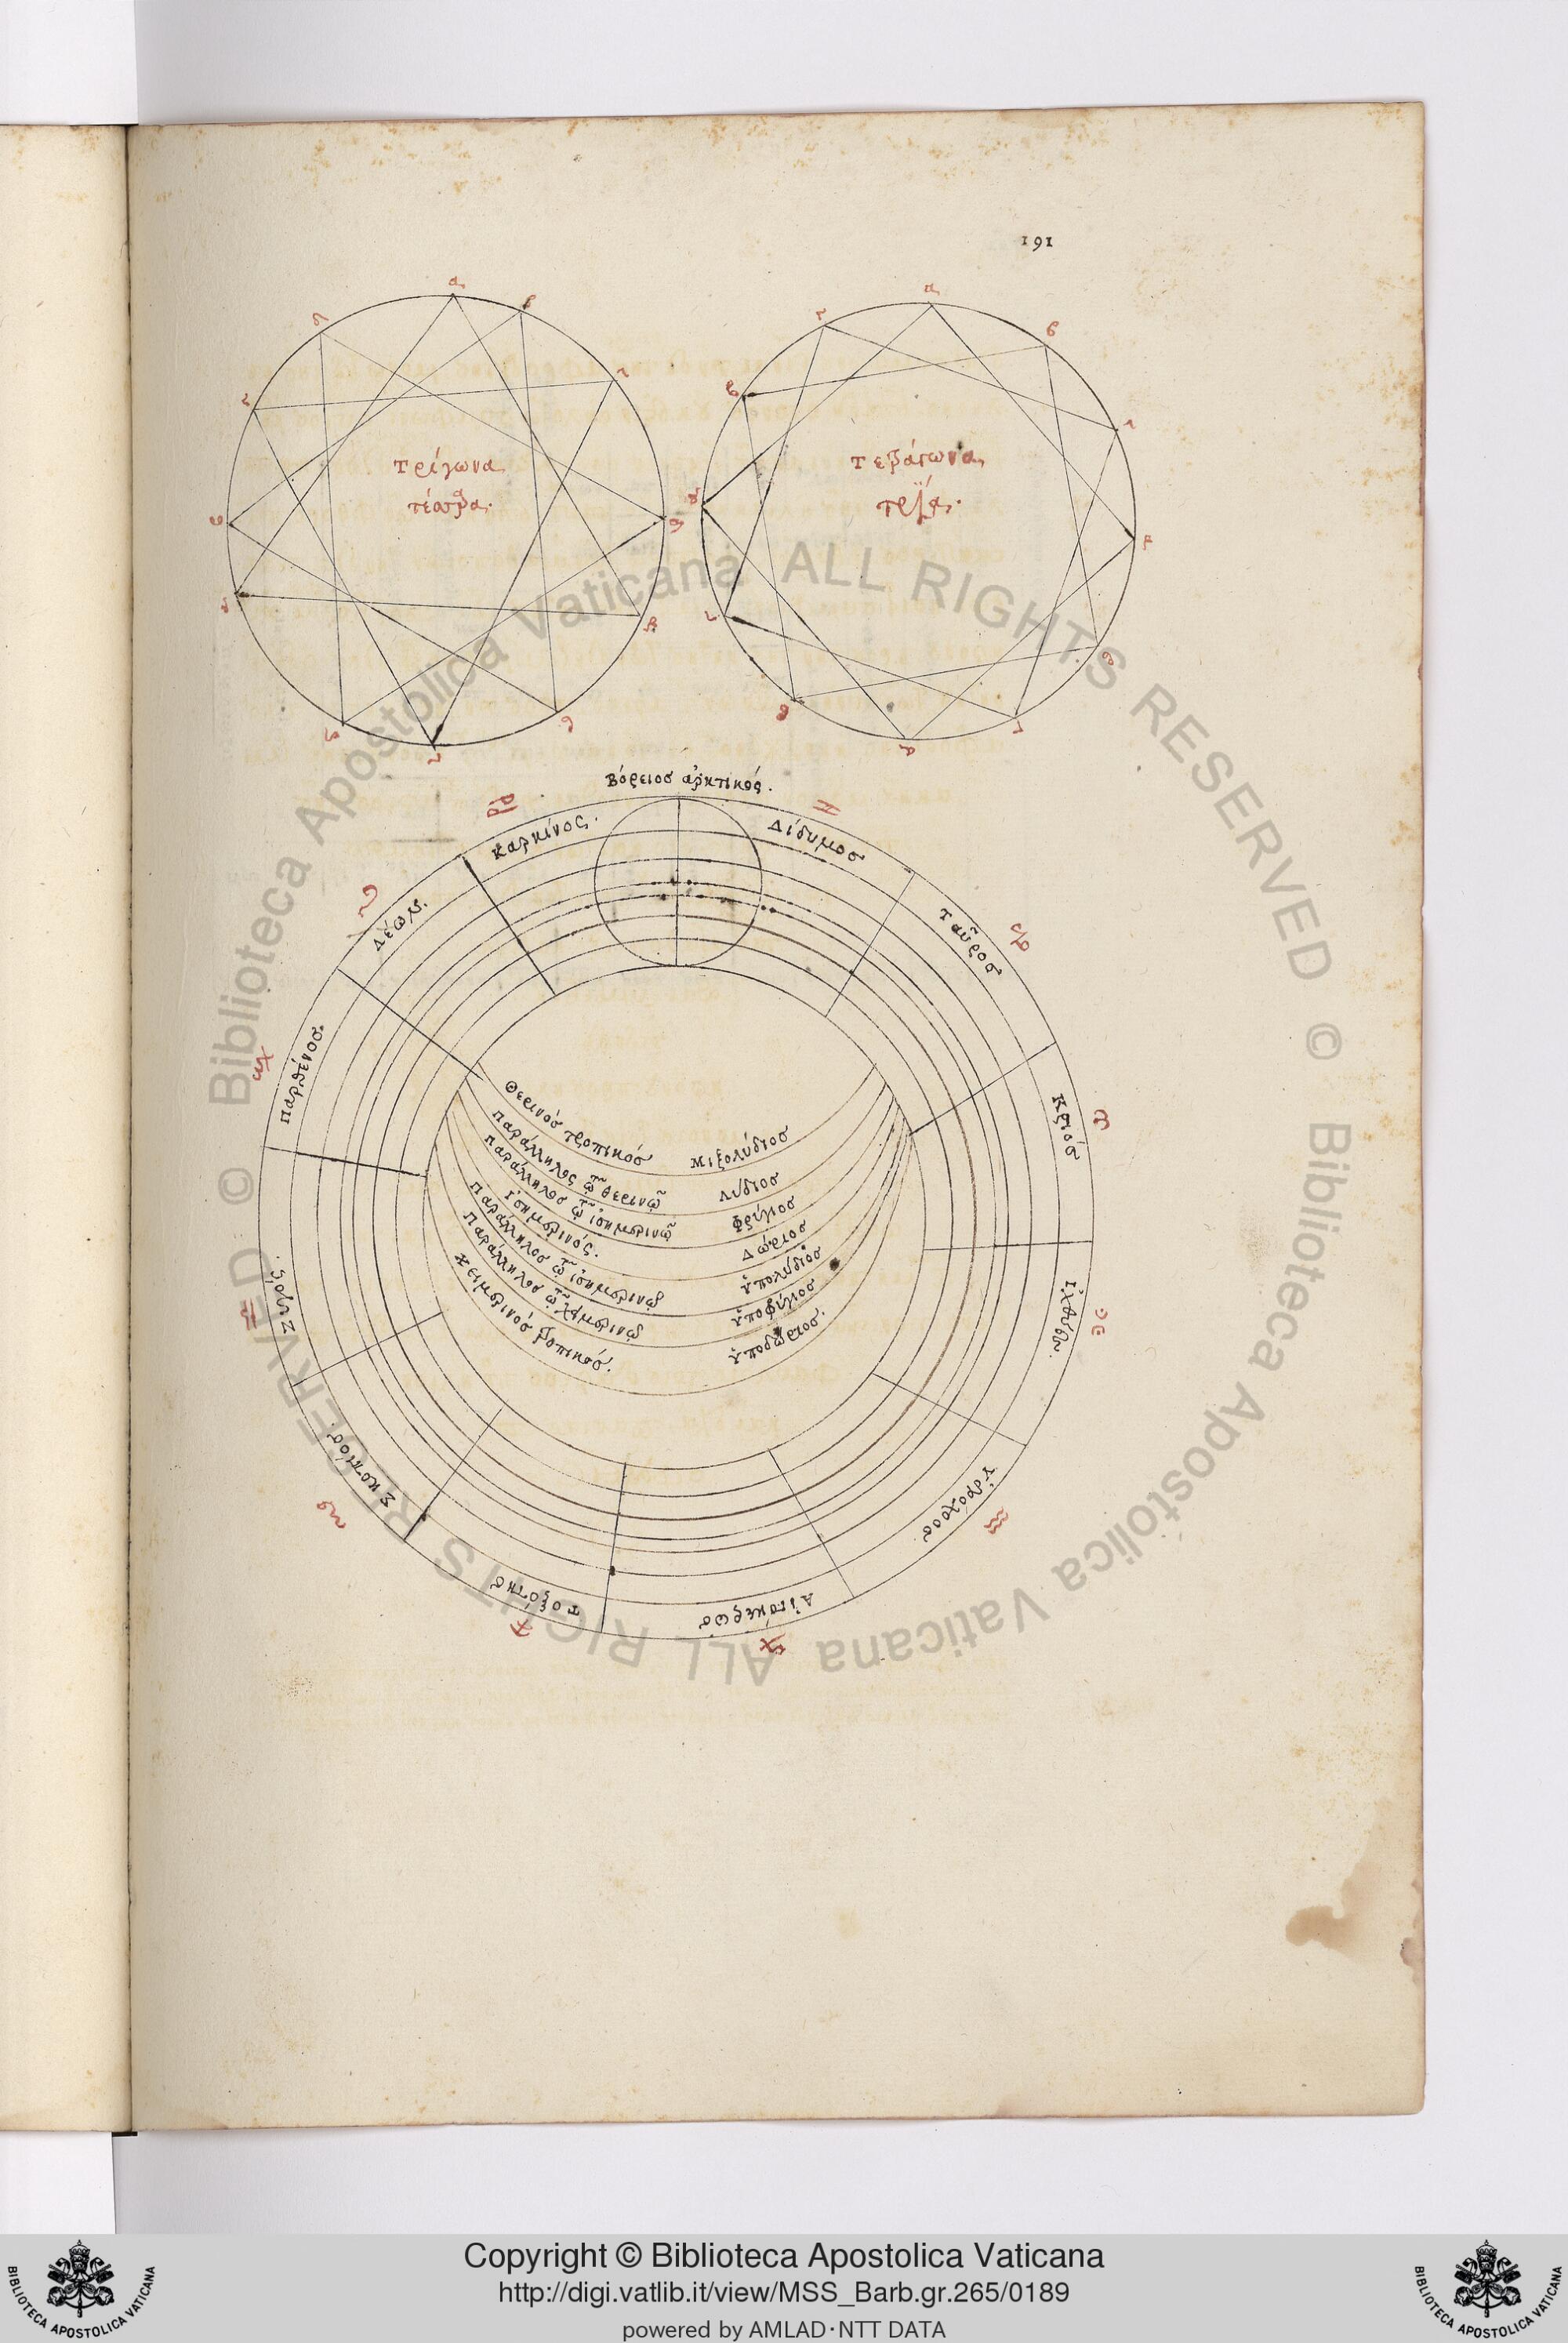 191
τρίγωνα
τέσσαρα.
τετράγωνα
τρία.
Βόρειοσ ἀρκτικός.
Καρκίνος.
Δίδυμοσ
Λέων.
ταῦροσ
παρθένοσ.
Κριόσ
Ζυγός
ἰχθύων.
Σκοπτίοσ.
ὑδρόχοοσ
τοξότησ
Αἰγόκερωσ
Θερινόσ τροπικόσ
μιξολύδιοσ
παράλληλος τῶ θερινῶ
λύδιοσ
παράλληλοσ τῶ ἰσημερινῶ
Φρύγιοσ
ἰσημερινός.
Δώριοσ
παράλληλοσ τῶ ἰσημερινῶ
ὑπολύδιοσ
παράλληλοσ τῶ χειμερινῶ
ὑποφρύγιοσ
χειμερινόσ τροπικόσ.
ὑποδώριοσ.
© Biblioteca Apostolica Vaticana ALL RIGHTS RESERVED © Biblioteca Apostolica Vaticana ALL RIGHTS RESERVED
BIBLIOTECA APOSTOLICA VATICANA
Copyright © Biblioteca Apostolica Vaticana
http://digi.vatlib.it/view/MSS_Barb.gr.265/0189
powered by AMLAD·NTT DATA
BIBLIOTECA APOSTOLICA VATICANA